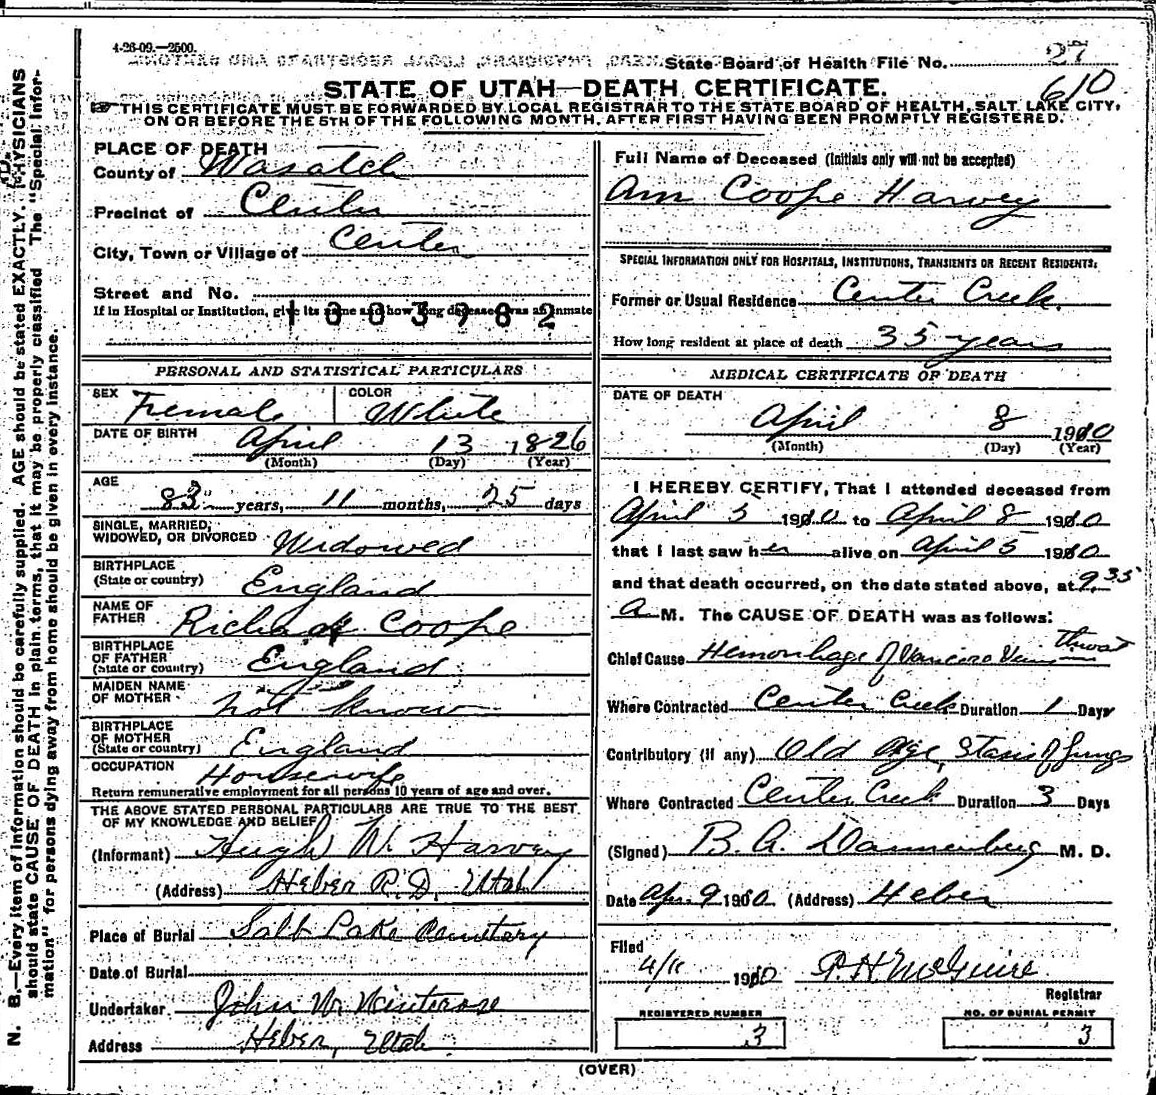 4-26-09.—2500.
State Board of Health File No. 27
610
STATE OF UTAH—DEATH CERTIFICATE.
THIS CERTIFICATE MUST BE FORWARDED BY LOCAL REGISTRAR TO THE STATE BOARD OF HEALTH, SALT LAKE CITY,
ON OR BEFORE THE 5TH OF THE FOLLOWING MONTH, AFTER FIRST HAVING BEEN PROMPTLY REGISTERED.
PLACE OF DEATH
County of Wasatch
Precinct of Center
City, Town or Village of Center
Street and No.
If in Hospital or Institution, give its name and how long deceased was an inmate
1003782
PERSONAL AND STATISTICAL PARTICULARS
SEX Female COLOR White
DATE OF BIRTH April 13 1826
(Month) (Day) (Year)
AGE
83 years, 11 months, 25 days
SINGLE, MARRIED,
WIDOWED, OR DIVORCED Widowed
BIRTHPLACE
(State or country) England
NAME OF
FATHER Richard Coope
BIRTHPLACE
OF FATHER
(State or country) England
MAIDEN NAME
OF MOTHER not know
BIRTHPLACE
OF MOTHER
(State or country) England
OCCUPATION Housewife
Return remunerative employment for all persons 10 years of age and over.
THE ABOVE STATED PERSONAL PARTICULARS ARE TRUE TO THE BEST
OF MY KNOWLEDGE AND BELIEF
(Informant) Hugh W. Harvey
(Address) Heber R.D. Utah
Place of Burial Salt Lake Cemetery
Date of Burial
Undertaker John W. Winterose
Address Heber, Utah
Full Name of Deceased (Initials only will not be accepted)
Ann Coope Harvey
SPECIAL INFORMATION ONLY FOR HOSPITALS, INSTITUTIONS, TRANSIENTS OR RECENT RESIDENTS:
Former or Usual Residence Center Creek.
How long resident at place of death 35 years
MEDICAL CERTIFICATE OF DEATH
DATE OF DEATH
April 8 1910
(Month) (Day) (Year)
I HEREBY CERTIFY, That I attended deceased from
April 5 1910 to April 8 1910
that I last saw her alive on April 5 1910
and that death occurred, on the date stated above, at 9.35
a M. The CAUSE OF DEATH was as follows:
Chief Cause Hemorrhage of Varicose Vein throat
Where Contracted Center Creek Duration 1 Days
Contributory (if any) Old Age, Stasis of lungs
Where Contracted Center Creek Duration 3 Days
(Signed) B. A. Dannenberg M. D.
Date Apr. 9 1910. (Address) Heber
Filed
4/11 1910 P. H. McGuire
Registrar
REGISTERED NUMBER
3
NO. OF BURIAL PERMIT
3
(OVER)
N. B.—Every item of information should be carefully supplied. AGE should be stated EXACTLY. PHYSICIANS
should state CAUSE OF DEATH in plain terms, that it may be properly classified. The "Special Infor-
mation" for persons dying away from home should be given in every instance.